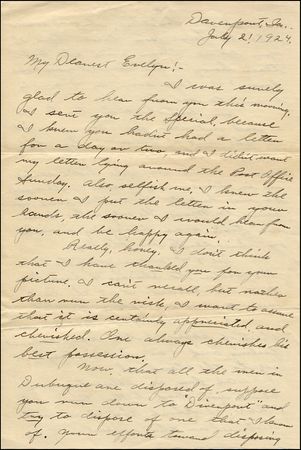 Davenport, Ia.
July 21 1924.
My Dearest Evelyn:-
I was surely
glad to hear from you this morning.
I sent you the Special, because
I knew you hadn't had a letter
for a day or two, and I didn't want
my letter lying around the Post Office
Sunday. Also, selfish me, I knew the
sooner I put the letter in your
hands, the sooner I would hear from
you, and be happy again.
Really, honey, I don't think
that I have thanked you for your
picture. I can't recall, but rather
than run the risk, I want to assure
that it is certainly appreciated, and
cherished. One always cherishes his
best possession.
Now, that all the men in
Dubuque are disposed of, suppose
you run down to "Divenport" and
try to dispose of one that I know
of. Your efforts toward disposing